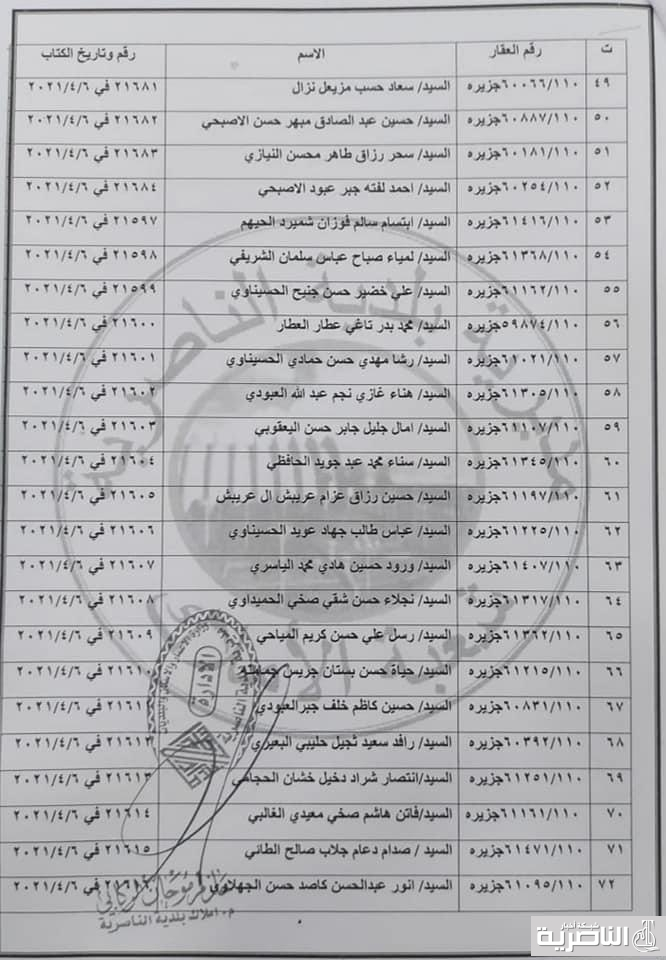 ت رقم العقار الاسم رقم وتاريخ الكتاب
٤٩ ٦٠٠٦٦/١١٠جزيره السيد/ سعاد حسب مزيعل نزال ٢١٦٨١ في ٢٠٢١/٤/٦
٥٠ ٦٠٨٨٧/١١٠جزيره السيد/ حسين عبد الصادق مبهر حسن الاصبحي ٢١٦٨٢ في ٢٠٢١/٤/٦
٥١ ٦٠١٨١/١١٠جزيره السيد/ سحر رزاق طاهر محسن النيازي ٢١٦٨٣ في ٢٠٢١/٤/٦
٥٢ ٦٠٢٥٤/١١٠جزيره السيد/ احمد لفته جبر عبود الاصبحي ٢١٦٨٤ في ٢٠٢١/٤/٦
٥٣ ٦١٤١٦/١١٠جزيره السيد/ ابتسام سالم فوزان شميرد الحيهم ٢١٥٩٧ في ٢٠٢١/٤/٦
٥٤ ٦١٣٦٨/١١٠جزيره السيد/ لمياء صباح عباس سلمان الشريفي ٢١٥٩٨ في ٢٠٢١/٤/٦
٥٥ ٦١١٦٢/١١٠جزيره السيد/ علي خضير حسن جنيح الحسيناوي ٢١٥٩٩ في ٢٠٢١/٤/٦
٥٦ ٥٩٨٧٤/١١٠جزيره السيد/ محمد بدر تاغي عطار العطار ٢١٦٠٠ في ٢٠٢١/٤/٦
٥٧ ٦١٠٢١/١١٠جزيره السيد/ رشا مهدي حسن حمادي الحسيناوي ٢١٦٠١ في ٢٠٢١/٤/٦
٥٨ ٦١٣٠٥/١١٠جزيره السيد/ هناء غازي نجم عبد الله العبودي ٢١٦٠٢ في ٢٠٢١/٤/٦
٥٩ ٦١١٠٧/١١٠جزيره السيد/ امال جليل جابر حسن اليعقوبي ٢١٦٠٣ في ٢٠٢١/٤/٦
٦٠ ٦١٣٤٥/١١٠جزيره السيد/ سناء محمد عبد جويد الحافظي ٢١٦٠٤ في ٢٠٢١/٤/٦
٦١ ٦١١٩٧/١١٠جزيره السيد/ حسين رزاق عزام عريبش ال عريبش ٢١٦٠٥ في ٢٠٢١/٤/٦
٦٢ ٦١٢٢٥/١١٠جزيره السيد/ عباس طالب جهاد عويد الحسيناوي ٢١٦٠٦ في ٢٠٢١/٤/٦
٦٣ ٦١٤٠٧/١١٠جزيره السيد/ ورود حسين هادي محمد الياسري ٢١٦٠٧ في ٢٠٢١/٤/٦
٦٤ ٦١٣١٧/١١٠جزيره السيد/ نجلاء حسن شقي صخي الحميداوي ٢١٦٠٨ في ٢٠٢١/٤/٦
٦٥ ٦١٣٦٢/١١٠جزيره السيد/ رسل علي حسن كريم المياحي ٢١٦٠٩ في ٢٠٢١/٤/٦
٦٦ ٦١٢١٥/١١٠جزيره السيد/ حياة حسن بستان جريس في ٢٠٢١/٤/٦
٦٧ ٦٠٨٣١/١١٠جزيره السيد/ حسين كاظم خلف جبرالعبودي في ٢٠٢١/٤/٦
٦٨ ٦٠٣٩٢/١١٠جزيره السيد/ رافد سعيد ثجيل حليبي البعيري في ٢٠٢١/٤/٦
٦٩ ٦١٢٥١/١١٠جزيره السيد/انتصار شراد دخيل خشان الحجامي ٢١٦١٣ في ٢٠٢١/٤/٦
٧٠ ٦١١٦١/١١٠جزيره السيد/فاتن هاشم صخي معيدي الغالبي ٢١٦١٤ في ٢٠٢١/٤/٦
٧١ ٦١٤٧١/١١٠جزيره السيد / صدام دعام جلاب صالح الطائي ٢١٦١٥ في ٢٠٢١/٤/٦
٧٢ ٦١٠٩٥/١١٠جزيره السيد/ انور عبدالحسن كاصد حسن الجهلاوي في ٢٠٢١/٤/٦
م. املاك بلدية الناصرية
مديرية بلدية الناصرية
شعبة الاملاك
الادارة
شبكة اخبار
الناصرية